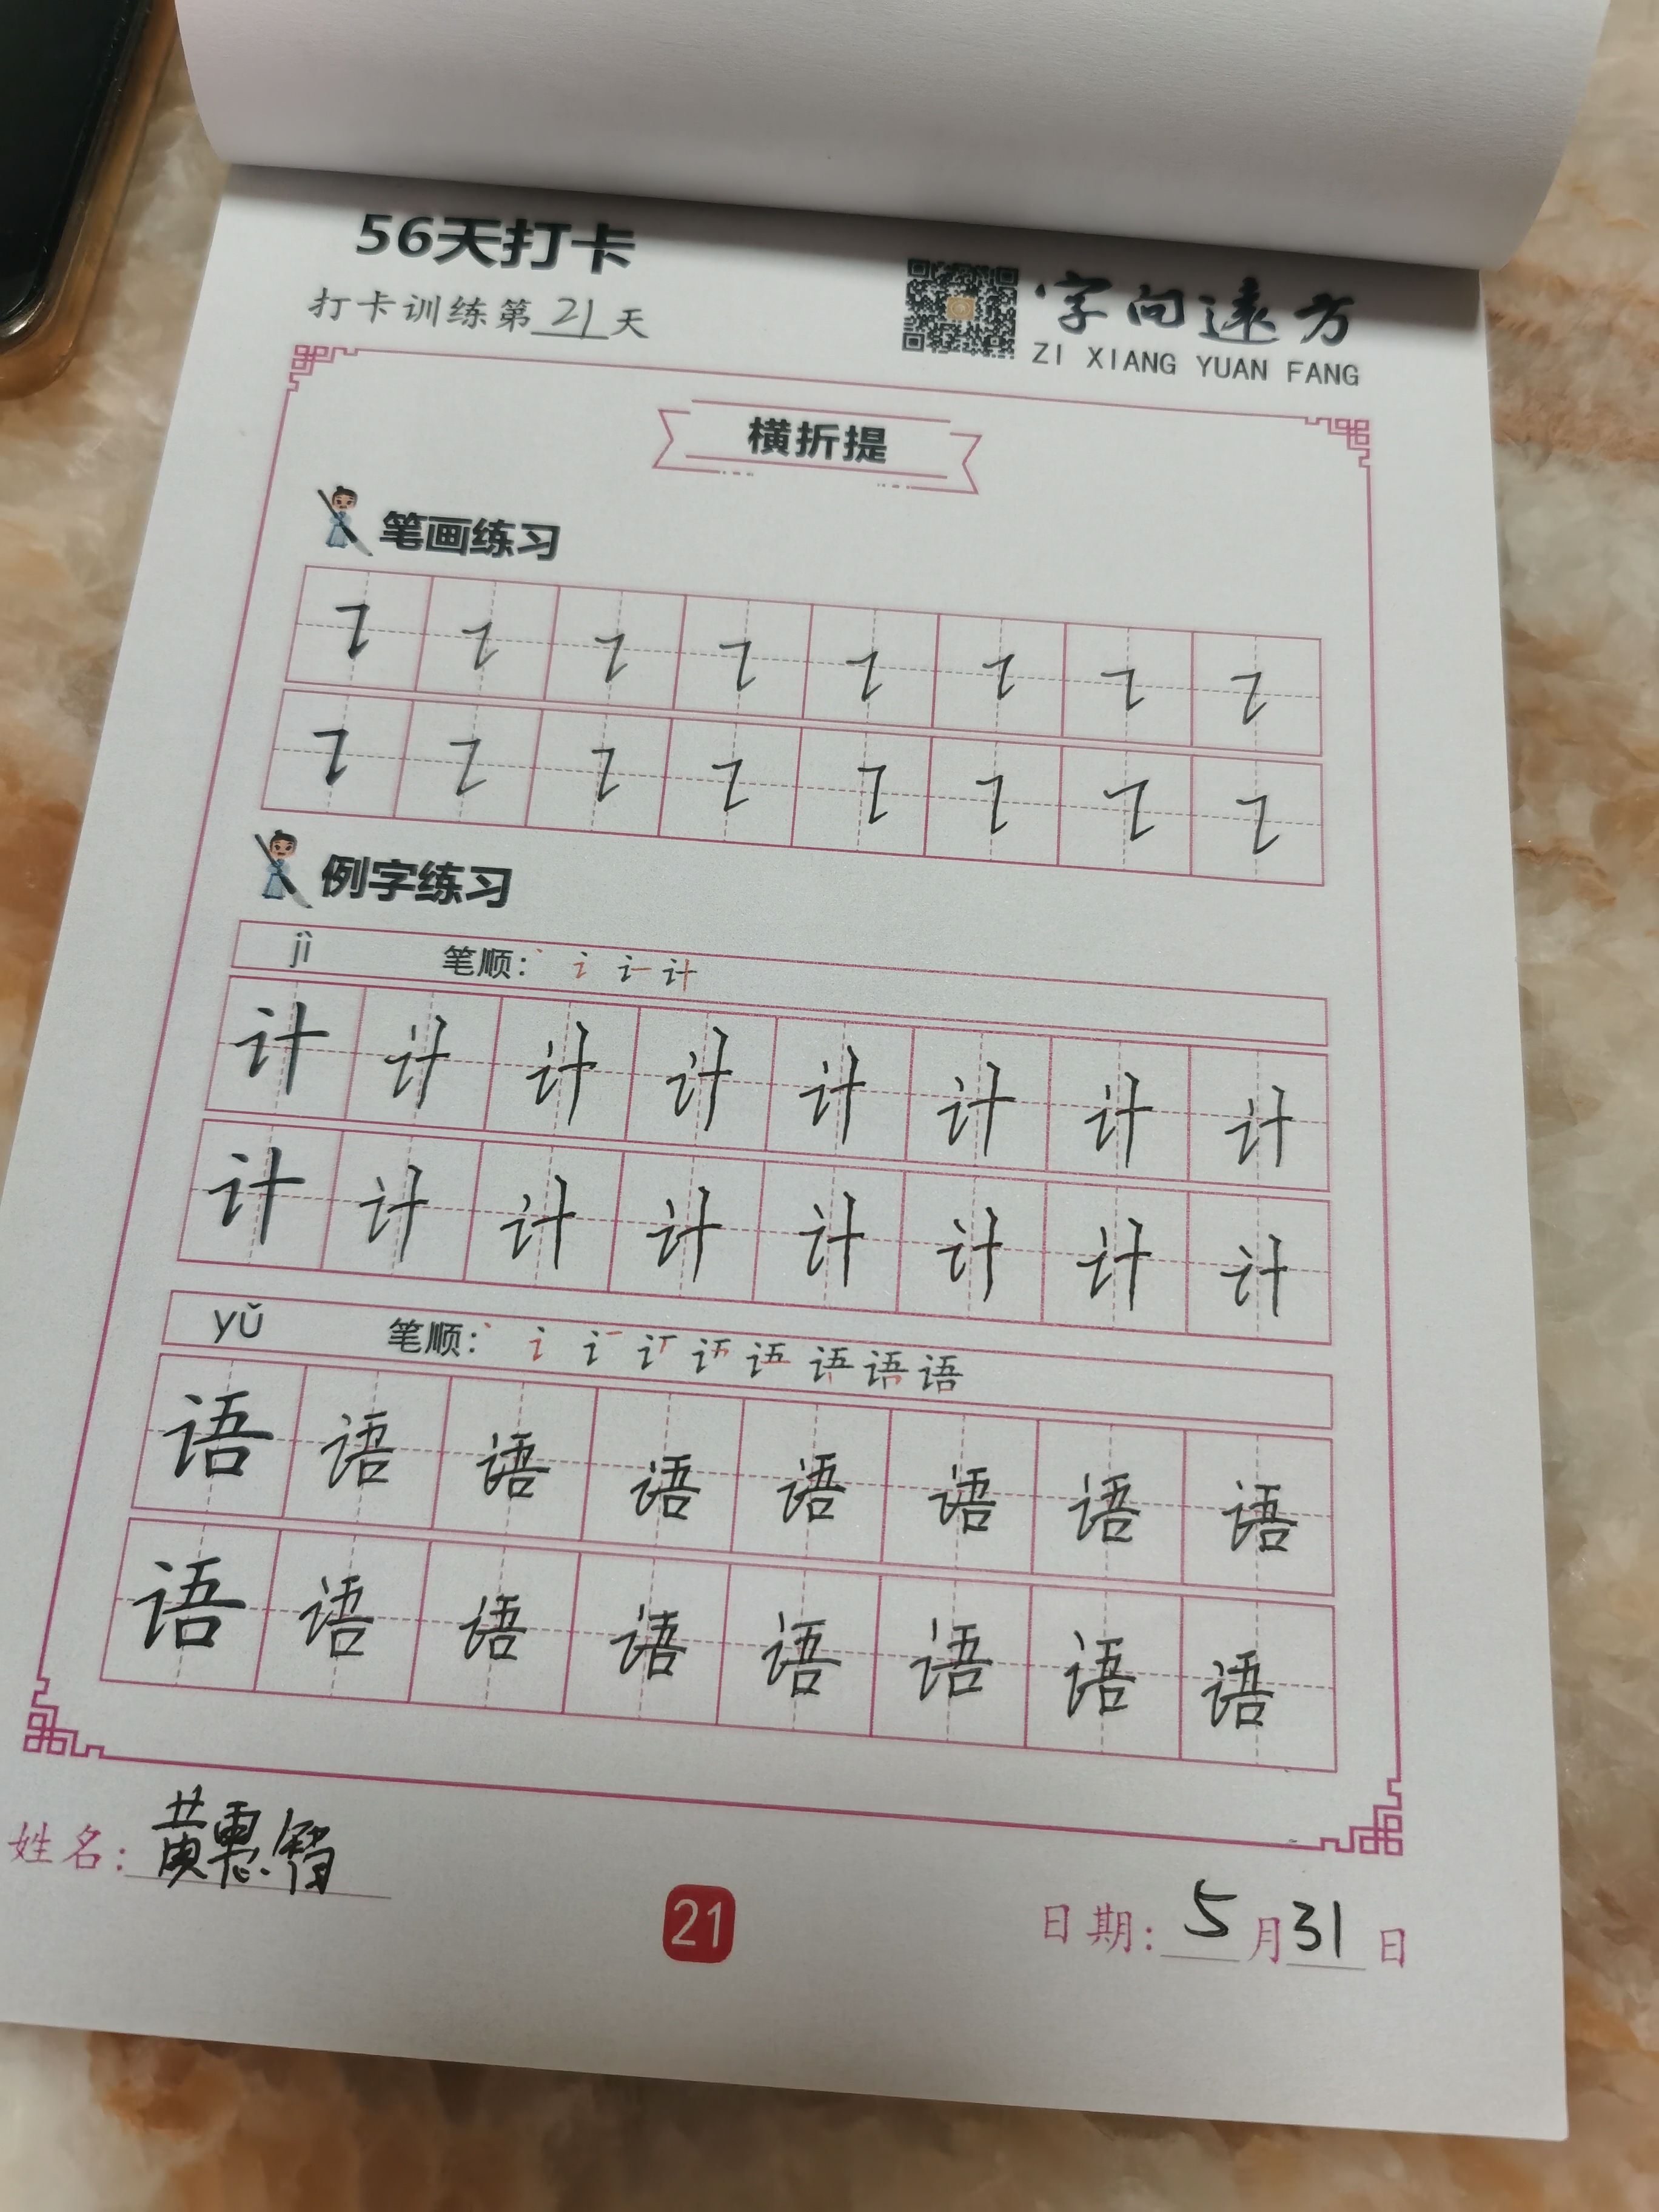 56天打卡
打卡训练第21天
字向远方
ZI XIANG YUAN FANG
横折提
笔画练习
例字练习
jì 笔顺:
计 计 计 计 计 计 计 计
计 计 计 计 计 计 计 计
yǔ 笔顺: 语
语 语 语 语 语 语 语 语
语 语 语 语 语 语 语 语
姓名:黄
21
日期:5月31日